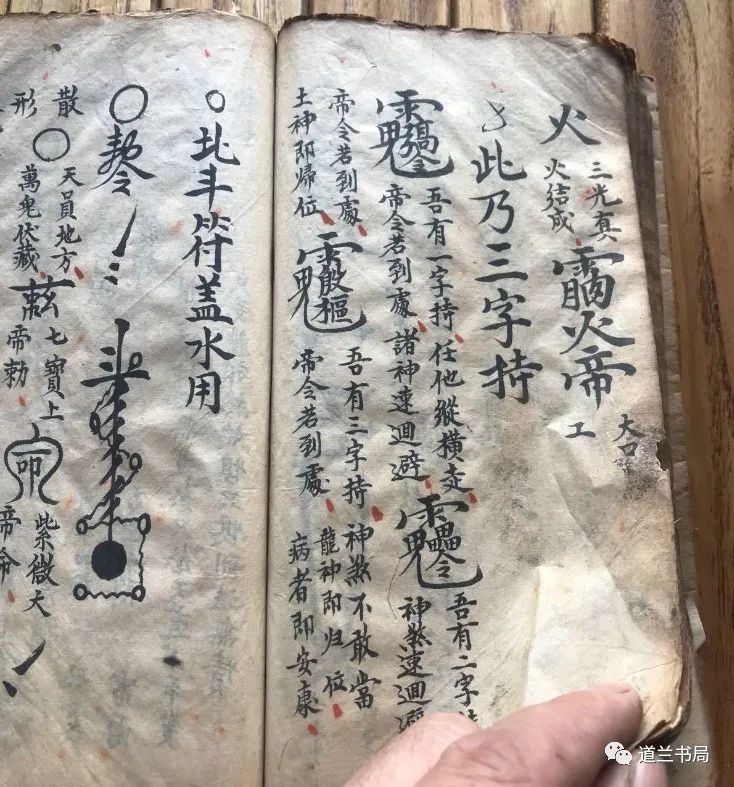 火 三光真火結成 火帝 大 工
此乃三字持
吾有一字持 任他縱横走
帝令若到處 諸神速迴避
吾有二字
神煞速迴避
帝令若到處
土神即歸位
吾有三字持 神煞不敢當
帝令若到處 龍神即归位
病者即安康
北斗符蓋水用
散形
天員地方
萬鬼伏藏
七寶上帝勅
紫微大帝
道兰书局